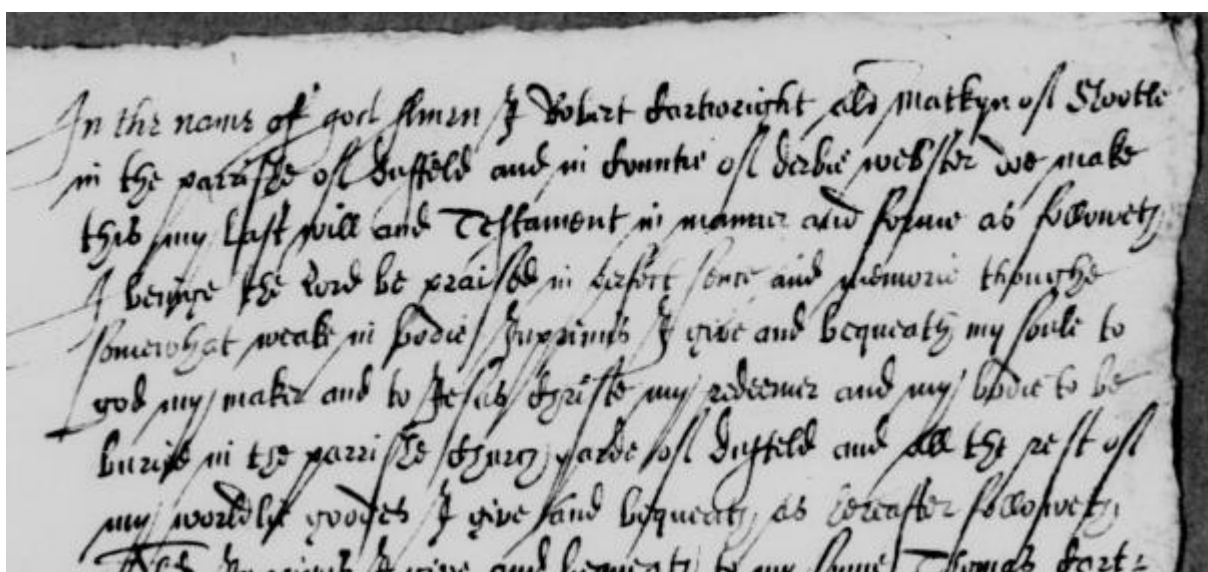 In the name of god Amen I Robert Cartwright als Matkyn of Shottle
in the parrishe of Duffeld and in Countie of Derbie webster doe make
this my Last will and Testament in manner and forme as followeth
I beinge the Lord be praised in perfect sence and memorie thoughe
somewhat weake in bodie Inprimis I give and bequeath my soule to
god my maker and to Jesus Christe my redeemer and my bodie to be
buried in the parrishe Church yarde of Duffeld and all the rest of
my worldlie goodes I give and bequeath as hereafter followeth
Inprimis I give and bequeath to my sonne Thomas Cart-